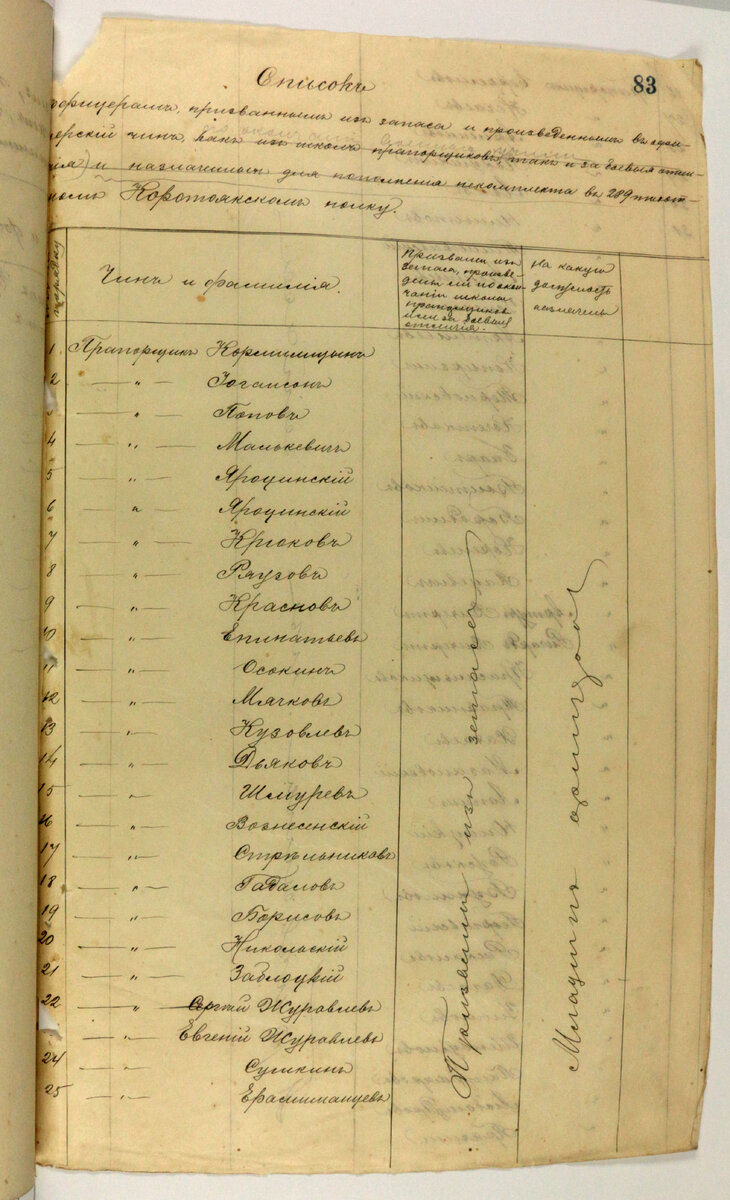 83
Списокъ
офицерамъ, призваннымъ изъ запаса и произведеннымъ въ офи-
церскій чинъ (какъ изъ школъ прапорщиковъ, такъ и за боевыя отли-
чія) и назначенныхъ для пополненія некомплекта въ 289 пѣхот-
номъ Коротоякскомъ полку.
порядку
Чинъ и фамилія.
Призваны изъ
запаса, произве-
дены ли по окон-
чаніи школы
прапорщиковъ
или за боевыя
отличія.
На какую
должность
назначены
1. Прапорщикъ Кормилицынъ
2 — " — Іогансонъ
3 — " — Поповъ
4 — " — Малькевичъ
5 — " — Яроцинскій
6 — " — Яроцинскій
7 — " — Крюковъ
8 — " — Ряузовъ
9 — " — Красновъ
10 — " — Епинатьевъ
11 — " — Осокинъ
12 — " — Мячковъ
13 — " — Кузовлевъ
14 — " — Дьяковъ
15 — " Шмуревъ
16 — " — Вознесенскій
17 — " — Стрѣльниковъ
18 — " — Гадаловъ
19 — " — Борисовъ
20 — " — Никольскій
21 — " — Заблоцкій
22 — " — Сергій Журавлевъ
— " — Евгеній Журавлевъ
24 — " — Сумкинъ
25 — " — Ерамишанцевъ
Призваны изъ запаса
Младшимъ офицеромъ